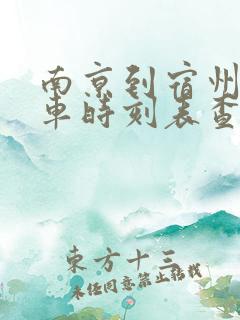 南京到宿州
车时刻表查
東方十三
未经同意禁止转载